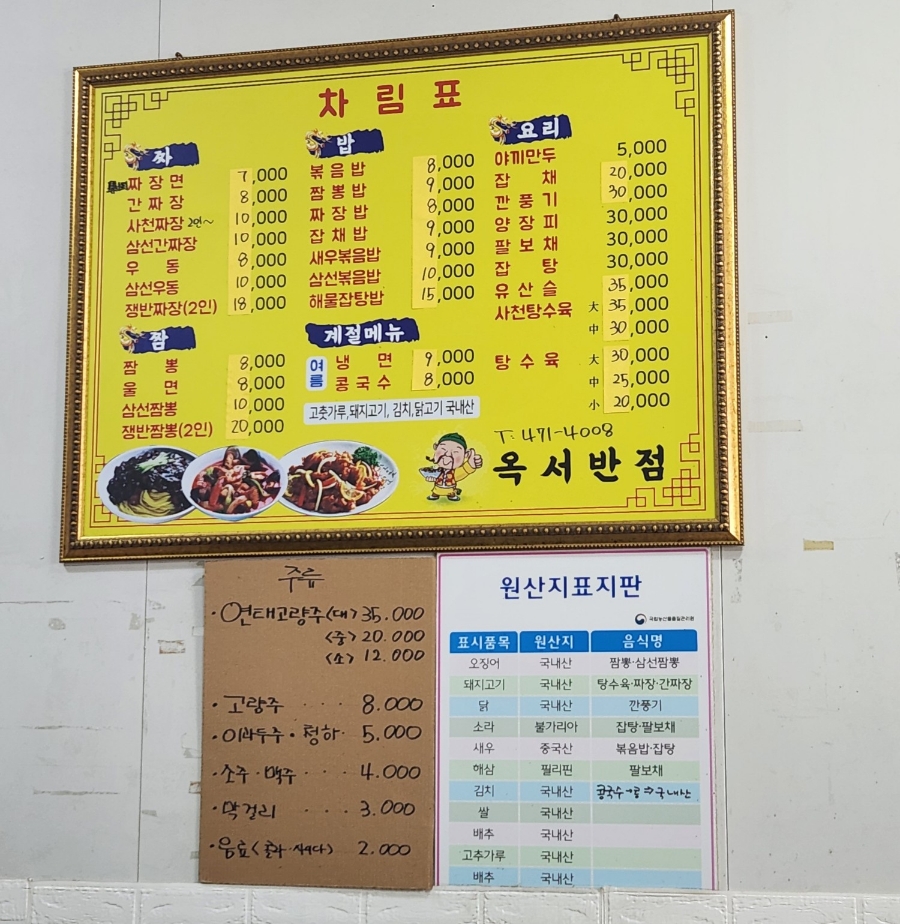 차림표
짜
짜장면 7,000
간짜장 8,000
사천짜장 2인~ 10,000
삼선간짜장 10,000
우동 8,000
삼선우동 10,000
쟁반짜장(2인) 18,000
짬
짬뽕 8,000
울면 8,000
삼선짬뽕 10,000
쟁반짬뽕(2인) 20,000
밥
볶음밥 8,000
짬뽕밥 9,000
짜장밥 8,000
잡채밥 9,000
새우볶음밥 9,000
삼선볶음밥 10,000
해물잡탕밥 15,000
계절메뉴
여름
냉면 9,000
콩국수 8,000
고춧가루,돼지고기, 김치,닭고기 국내산
요리
야끼만두 5,000
잡채 20,000
깐풍기 30,000
양장피 30,000
팔보채 30,000
잡탕 30,000
유산슬 35,000
사천탕수육 大 35,000
中 30,000
탕수육 大 30,000
中 25,000
小 20,000
T. 471-4008
옥서반점
주류
·연태고량주<대> 35.000
<중> 20.000
<소> 12.000
·고량주 ··· 8.000
·이과두주·청하· 5.000
·소주·맥주 ··· 4.000
·막걸리 ···· 3.000
·음료<콜라·사이다> 2.000
원산지표지판
국립농산물품질관리원
표시품목 원산지 음식명
오징어 국내산 짬뽕·삼선짬뽕
돼지고기 국내산 탕수육·짜장·간짜장
닭 국내산 깐풍기
소라 불가리아 잡탕·팔보채
새우 중국산 볶음밥·잡탕
해삼 필리핀 팔보채
김치 국내산 콩국수→콩⇒국내산
쌀 국내산
배추 국내산
고추가루 국내산
배추 국내산